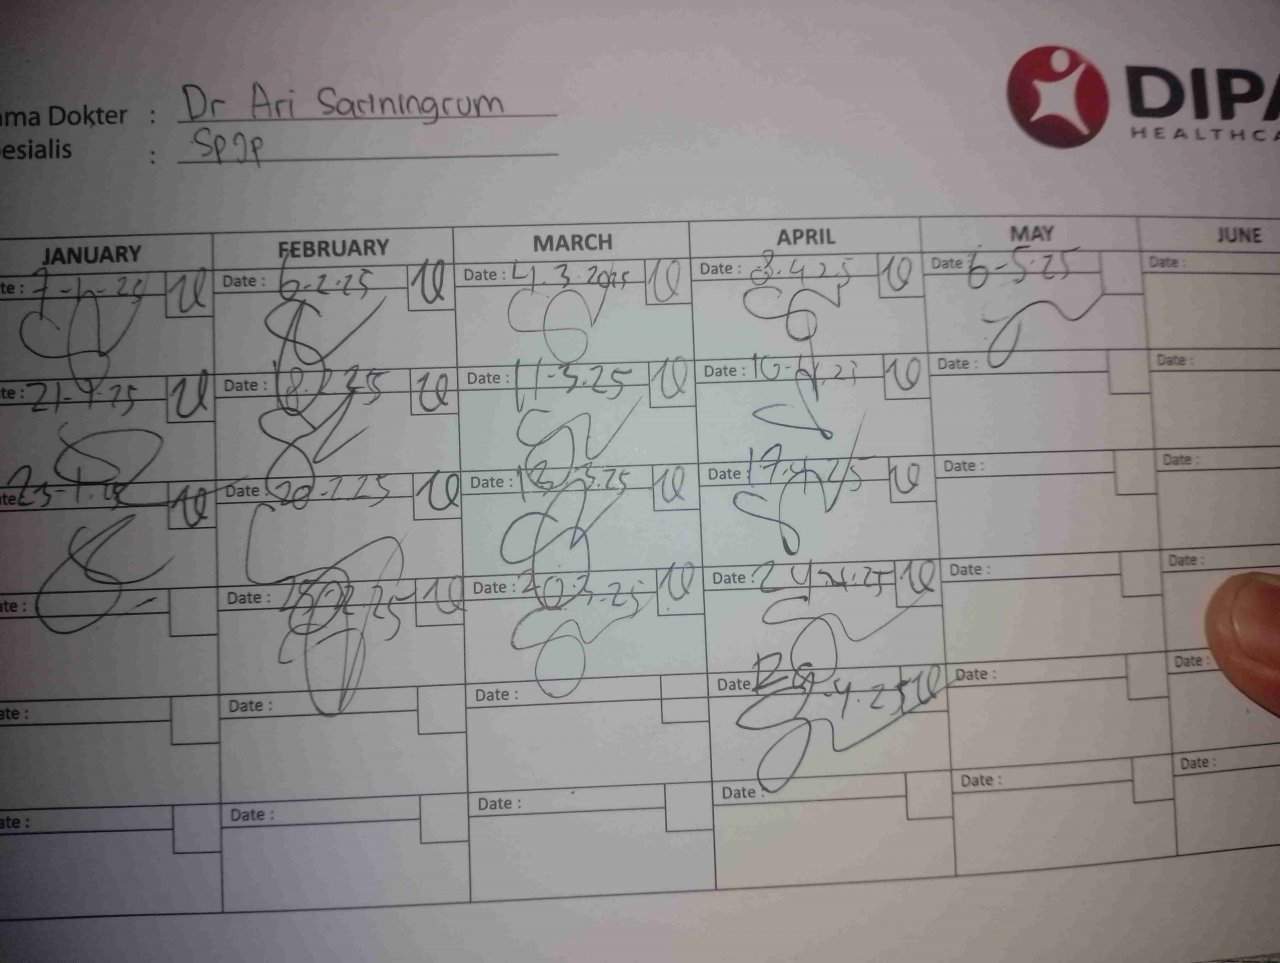 ma Dokter : Dr Ari Sariningrum
esialis : SpJp
DIPA
HEALTHCA
JANUARY FEBRUARY MARCH APRIL MAY JUNE
te : 7-1-25 Date : 6-2-25 Date : 4.3.2025 Date : 3.4.25 Date 6-5-25 Date :
te : 21-1-25 Date : 18.2.25 Date : 11-3.25 Date : 10-4.25 Date : Date :
te 23-1.25 Date : 20-2.25 Date : 3.25 Date : 17.4.25 Date : Date :
ate : Date : 2.25 Date : 20.3.25 Date : 24.4.25 Date : Date :
ate : Date : Date : Date -4.25 Date : Date :
ate : Date : Date : Date : Date : Date :